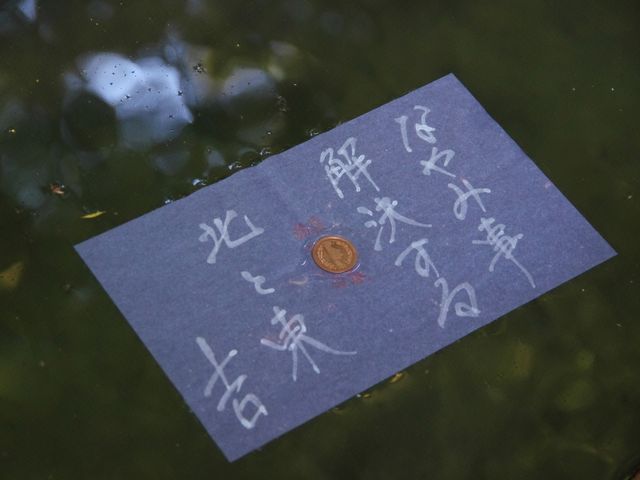 なやみ事
解決する
北と東
吉